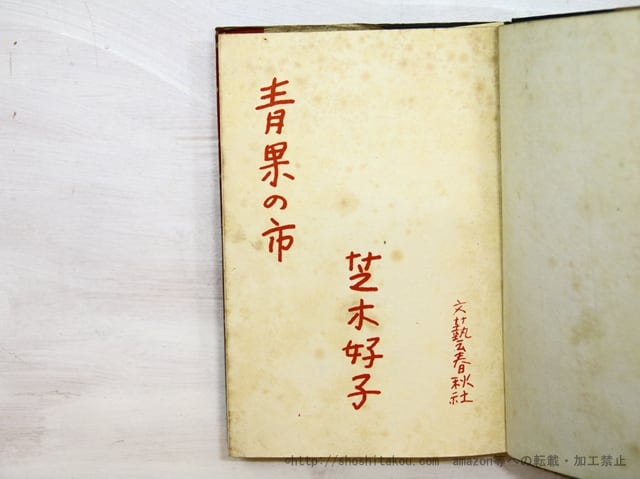 青果の市
芝木好子
文藝春秋社
©http://shoshitakou.com amazon等への転載・加工禁止